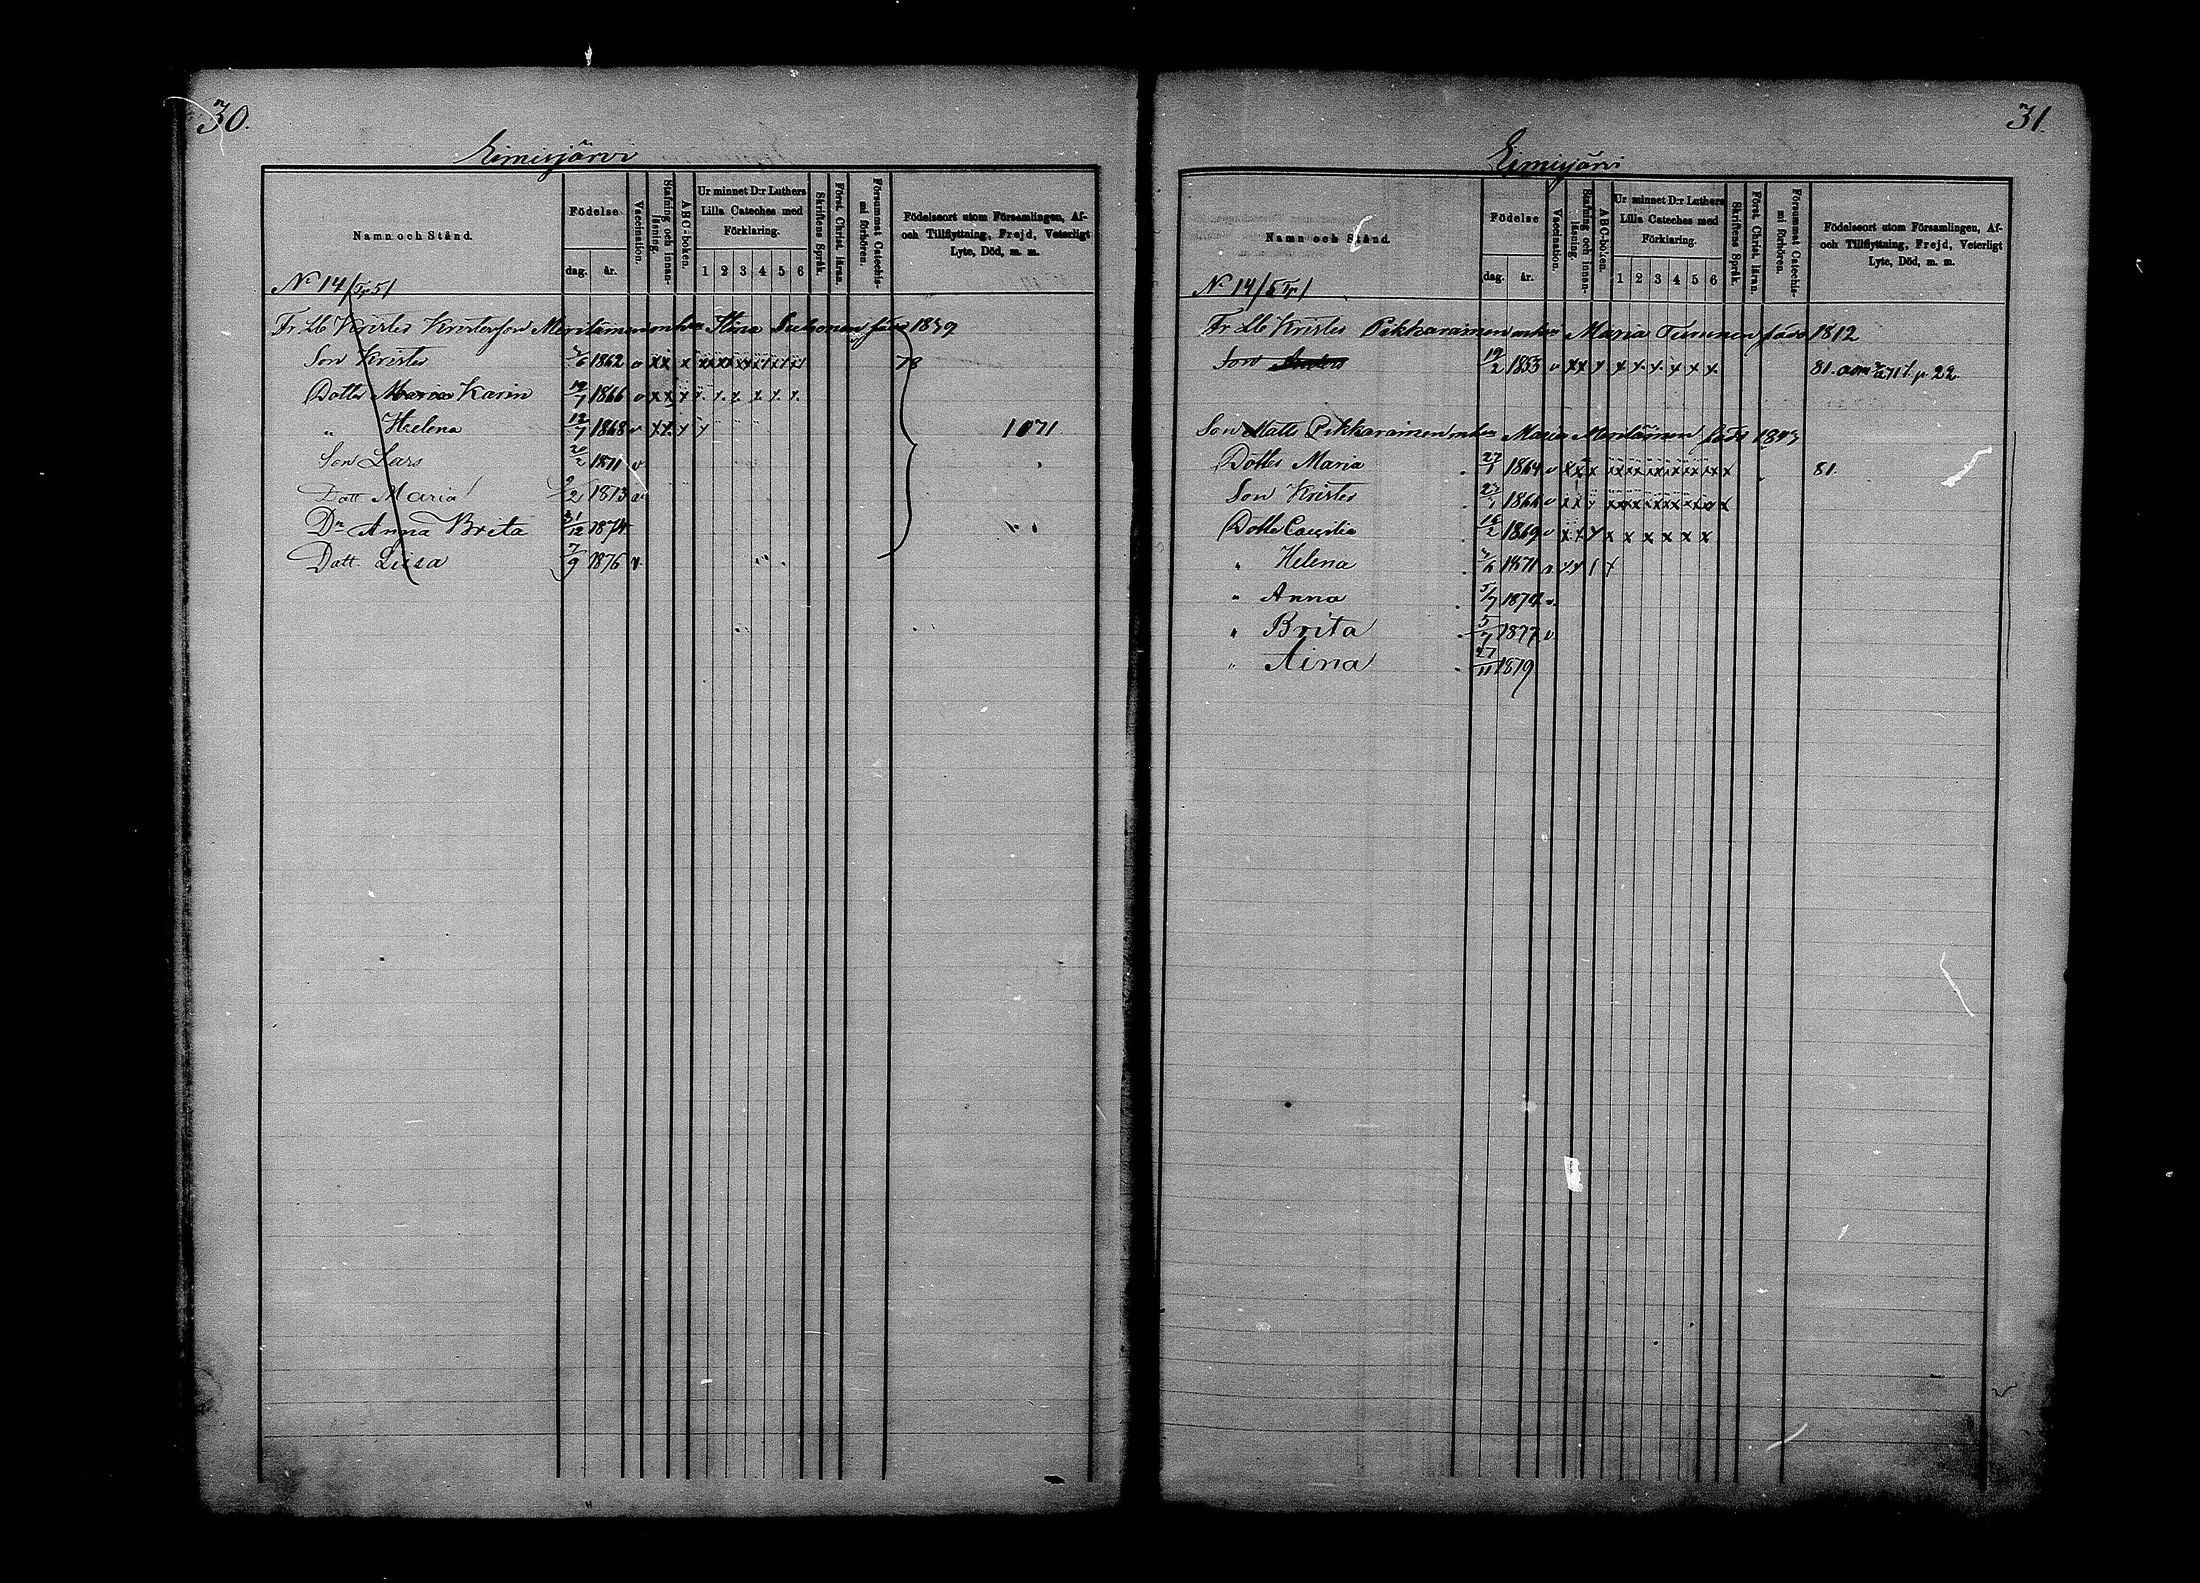 30.
Eimisjärvi
Namn och Stånd.
Födelse
dag. år.
Vaccination.
Stafning och innan-läsning.
ABC-boken.
Ur minnet D:r Luthers Lilla Cateches med Förklaring.
1 2 3 4 5 6
Skriftens Språk.
Först. Christ. läran.
Försummat Catechis-mi förhören.
Födelseort utom Församlingen, Af- och Tillflyttning, Frejd, Veterligt Lyte, Död, m. m.
No 14/
Kristo Kristersson Meriläinen enka Stina född 1839
Son Krister 1862 v x x x x x x x x x 78
Dotter Maria Karin 19/7 1866 v x x x
" Helena 12/7 1868 v x x x x 1071
Son Lars 20/2 1871 v
Dott Maria 9/2 1873 v
Dr Anna Brita 31/12 1874
Dott. Lissa 7/9 1876 v.
31.
Eimisjärvi
Namn och Stånd.
Födelse
dag. år.
Vaccination.
Stafning och innan-läsning.
ABC-boken.
Ur minnet D:r Luthers Lilla Cateches med Förklaring.
1 2 3 4 5 6
Skriftens Språk.
Först. Christ. läran.
Försummat Catechis-mi förhören.
Födelseort utom Församlingen, Af- och Tillflyttning, Frejd, Veterligt Lyte, Död, m. m.
No 14/
Krister Pikkarainen enka Maria Timonen född 1812
Son Anders 19/2 1853 v x x x x x x x x x 81. p. 22.
Son Matts Pikkarainen enka Maria Meriläinen född
Dotter Maria 27/1 1864 v x x x x x x x x x x 81.
Son Krister 1866 v x x x x x x x x x x
Dotter Caecilia 16/2 1869 v x x x x x x x x x
" Helena 1871
" Anna 5/7 1874 v.
" Brita 5/7 1877 v.
" Aina 27/11 1879